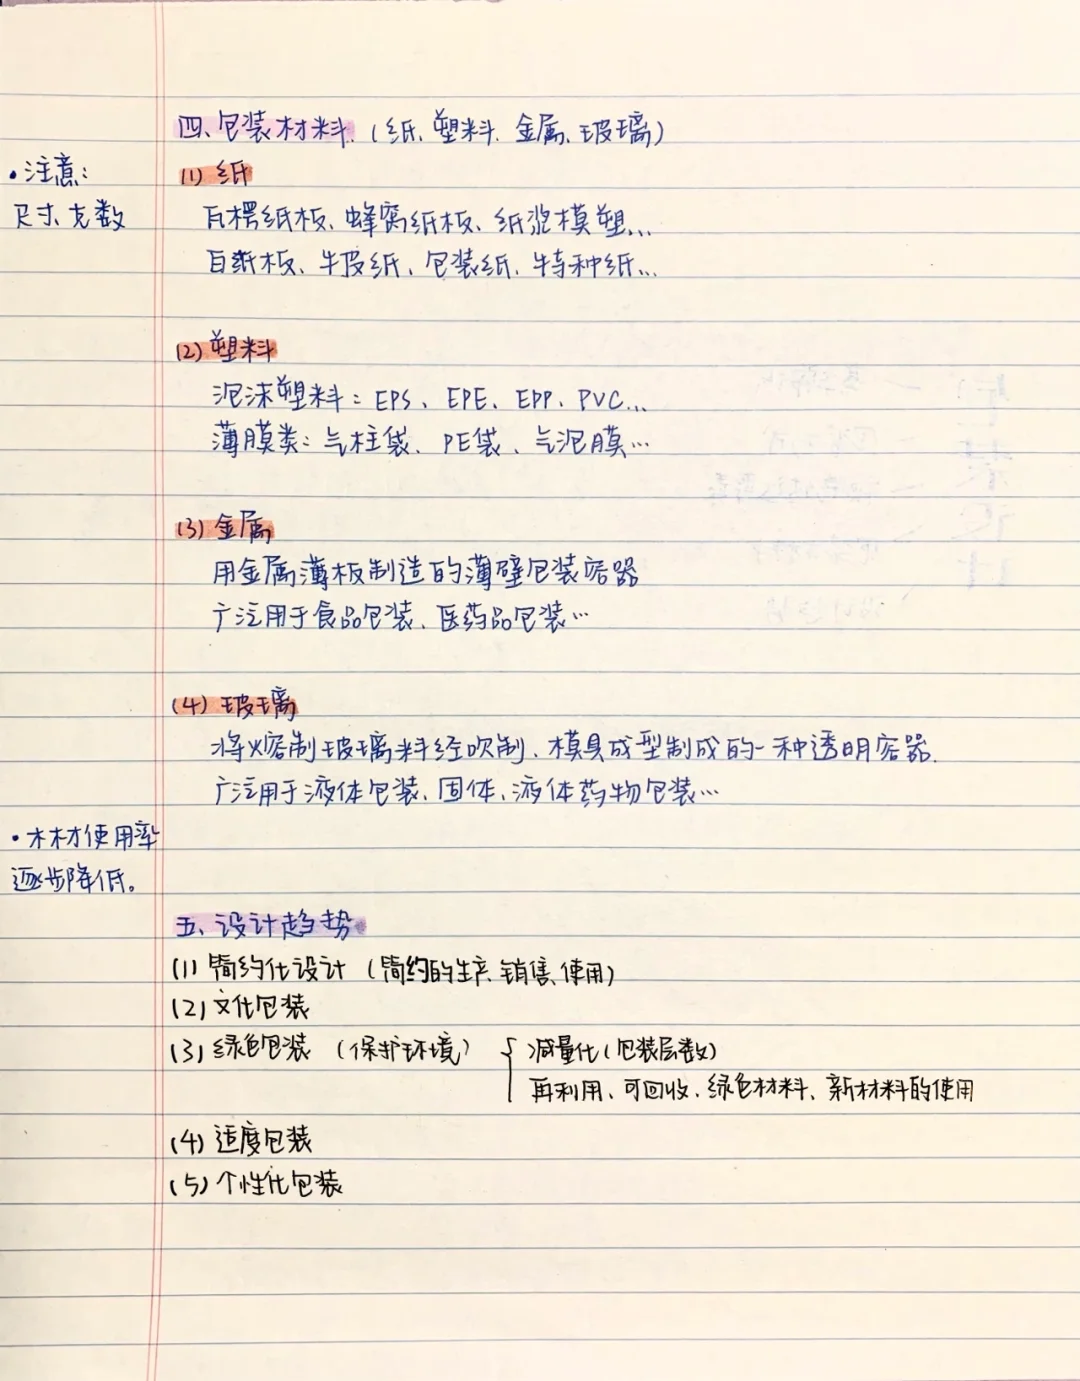 四、包装材料.（纸、塑料、金属、玻璃）
• 注意：
尺寸、克数
(1) 纸
瓦楞纸板、蜂窝纸板、纸浆模塑...
白纸板、牛皮纸、包装纸、特种纸...
(2) 塑料
泡沫塑料：EPS、EPE、EPP、PVC...
薄膜类：气柱袋、PE袋、气泡膜...
(3) 金属
用金属薄板制造的薄壁包装容器
广泛用于食品包装、医药品包装...
(4) 玻璃
将熔制玻璃料经吹制、模具成型制成的一种透明容器.
广泛用于液体包装、固体、液体药物包装...
• 木材使用率
逐步降低。
五、设计趋势
(1) 简约化设计（简约的生产、销售、使用）
(2) 文化包装
(3) 绿色包装（保护环境） { 减量化（包装层数）
再利用、可回收、绿色材料、新材料的使用
(4) 适度包装
(5) 个性化包装